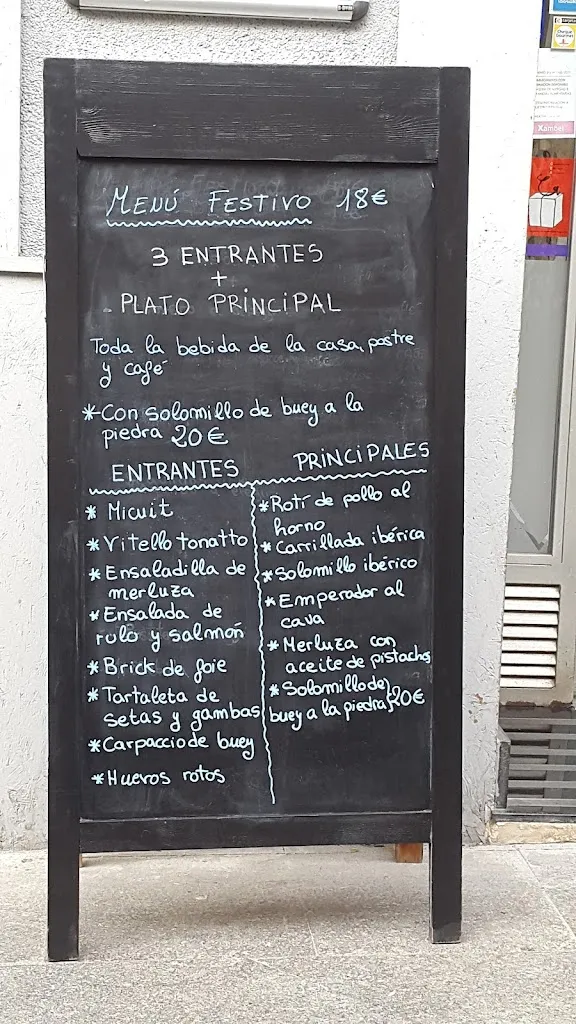 MENÚ FESTIVO 18€
3 ENTRANTES
+
PLATO PRINCIPAL
Toda la bebida de la casa, postre
y café
*Con solomillo de buey a la
piedra 20€
ENTRANTES
* Micuit
* Vitello tonatto
* Ensaladilla de
merluza
* Ensalada de
rulo y salmón
* Brick de foie
* Tartaleta de
setas y gambas
* Carpaccio de buey
* Huevos rotos
PRINCIPALES
* Rotí de pollo al
horno
* Carrillada ibérica
* Solomillo ibérico
* Emperador al
cava
* Merluza con
aceite de pistachos
* Solomillo de
buey a la piedra} 20€
Xamnel